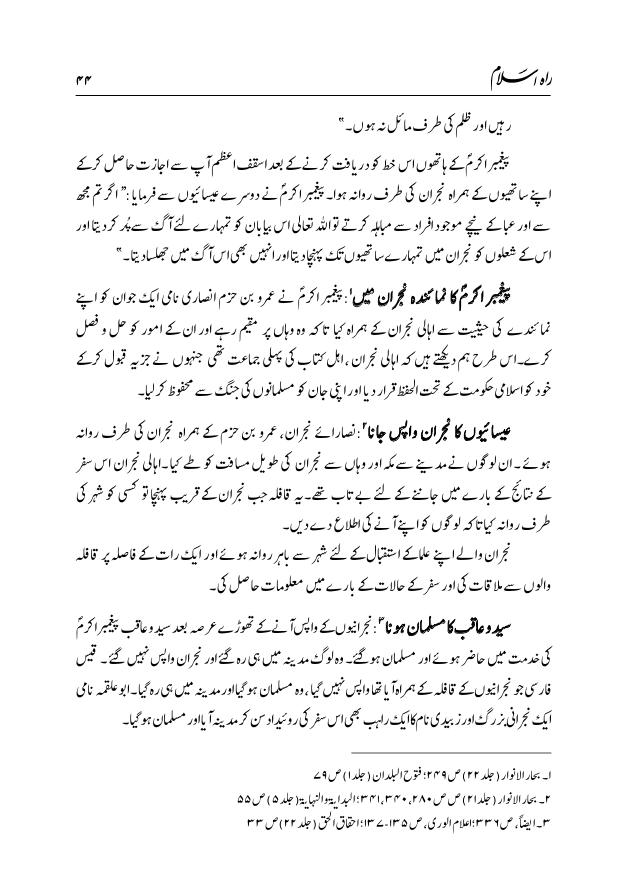 راہ اسلام
۴۴
رہیں اور ظلم کی طرف مائل نہ ہوں۔"
پیغمبر اکرمؐ کے ہاتھوں اس خط کو دریافت کرنے کے بعد اسقف اعظم آپ سے اجازت حاصل کرکے
اپنے ساتھیوں کے ہمراہ نجران کی طرف روانہ ہوا۔ پیغمبر اکرمؐ نے دوسرے عیسائیوں سے فرمایا: "اگر تم مجھ
سے اور عبا کے نیچے موجود افراد سے مباہلہ کرتے تو اللہ تعالی اس بیابان کو تمہارے لئے آگ سے پُر کر دیتا اور
اس کے شعلوں کو نجران میں تمہارے ساتھیوں تک پہنچا دیتا اور انہیں بھی اس آگ میں جھلسا دیتا۔"
پیغمبر اکرمؐ کا نمائندہ نجران میں۱: پیغمبر اکرمؐ نے عمرو بن حزم انصاری نامی ایک جوان کو اپنے
نمائندے کی حیثیت سے اہالی نجران کے ہمراہ کیا تاکہ وہ وہاں پر مقیم رہے اور ان کے امور کو حل و فصل
کرے۔ اس طرح ہم دیکھتے ہیں کہ اہالی نجران، اہل کتاب کی پہلی جماعت تھی جنہوں نے جزیہ قبول کرکے
خود کو اسلامی حکومت کے تحت الحفظ قرار دیا اور اپنی جان کو مسلمانوں کی جنگ سے محفوظ کر لیا۔
عیسائیوں کا نجران واپس جانا۲: نصارائے نجران، عمرو بن حزم کے ہمراہ نجران کی طرف روانہ
ہوئے۔ ان لوگوں نے مدینے سے مکہ اور وہاں سے نجران کی طویل مسافت کو طے کیا۔ اہالی نجران اس سفر
کے نتائج کے بارے میں جاننے کے لئے بے تاب تھے۔ یہ قافلہ جب نجران کے قریب پہنچا تو کسی کو شہر کی
طرف روانہ کیا تاکہ لوگوں کو اپنے آنے کی اطلاع دے دیں۔
نجران والے اپنے علما کے استقبال کے لئے شہر سے باہر روانہ ہوئے اور ایک رات کے فاصلہ پر قافلہ
والوں سے ملاقات کی اور سفر کے حالات کے بارے میں معلومات حاصل کی۔
سید و عاقب کا مسلمان ہونا۳: نجرانیوں کے واپس آنے کے تھوڑے عرصہ بعد سید و عاقب پیغمبر اکرمؐ
کی خدمت میں حاضر ہوئے اور مسلمان ہو گئے۔ وہ لوگ مدینہ میں ہی رہ گئے اور نجران واپس نہیں گئے۔ قیس
فارسی جو نجرانیوں کے قافلہ کے ہمراہ آیا تھا واپس نہیں گیا، وہ مسلمان ہو گیا اور مدینہ میں ہی رہ گیا۔ ابو علقمہ نامی
ایک نجرانی بزرگ اور زبیدی نام کا ایک راہب بھی اس سفر کی روئیداد سن کر مدینہ آیا اور مسلمان ہو گیا۔
۱۔ بحار الانوار (جلد ۲۲) ص ۲۴۹؛ فتوح البلدان (جلد ۱) ص ۷۹
۲۔ بحار الانوار (جلد ۲۱) ص ص ۲۸۰، ۳۴۰، ۳۴۱؛ البدایۃ والنہایۃ (جلد ۵) ص ۵۵
۳۔ ایضاً، ص ۳۳۶؛ اعلام الوری، ص ۱۳۵-۱۳۷؛ احقاق الحق (جلد ۲۲) ص ۳۳